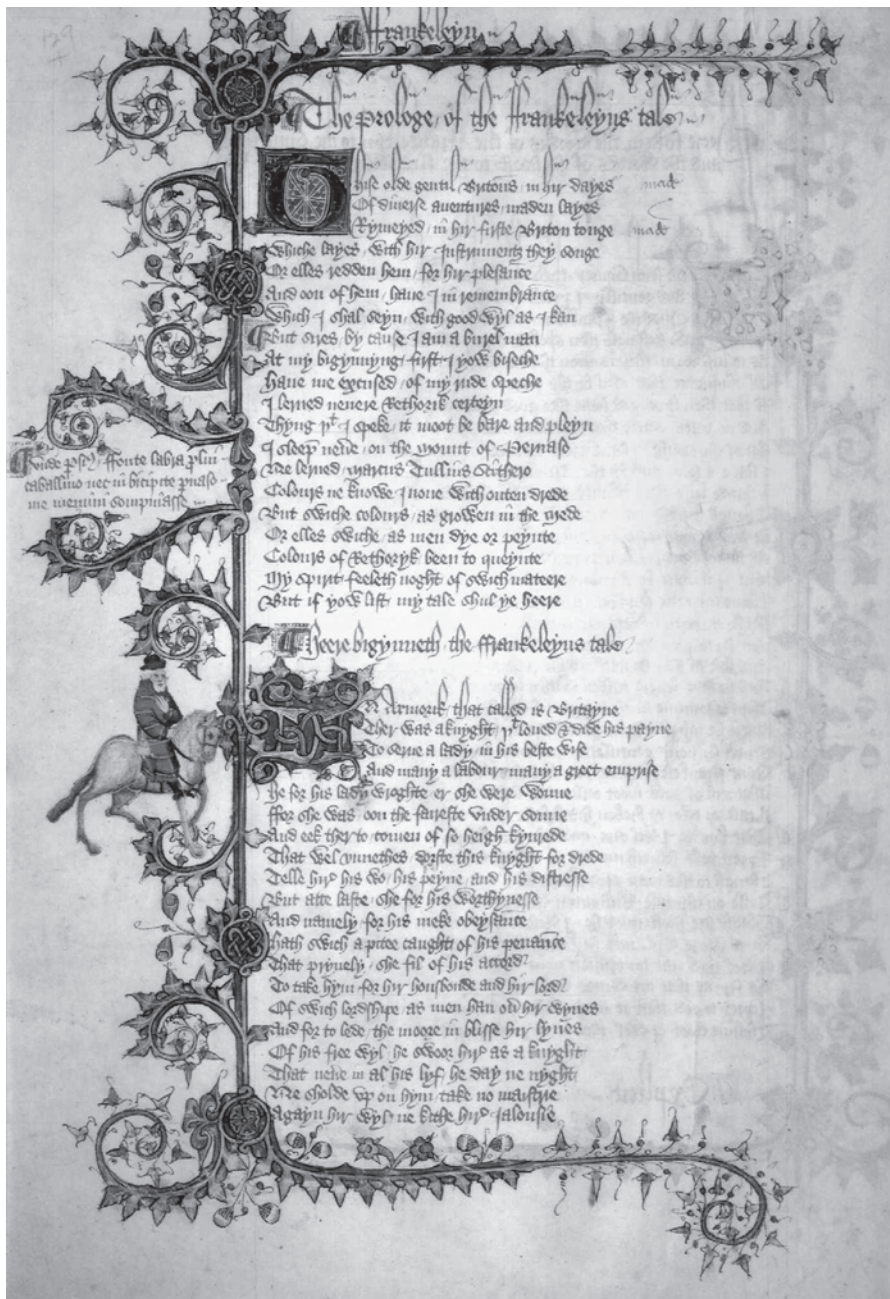 129
¶ffrankeleyn
¶The prologe of the ffrankeleyns tale
Thise olde gentil Britons in hir dayes mad
Of diuerse auentures maden layes
Rymeyed in hir firste Briton tonge made
Whiche layes with hir Instrumentz they songe
Or elles redden hem for hir plesance
And oon of hem haue I in remembrance
Which I shal seyn with good wyl as I kan
¶But sires by cause I am a burel man
At my bigynnyng first I yow biseche
Haue me excused of my rude speche
I lerned neuere Rethorik certeyn
Thyng yt I speke it moot be bare and pleyn
I sleep neuere on the Mount of Pernaso
Ne lerned Marcus Tullius Scithero
Colours ne knowe I none with outen drede
But swiche colours as growen in the mede
Or elles swiche as men dye or peynte
Colours of Rethoryk been to queynte
My spirit feeleth noght of swich mateere
But if yow list my tale shul ye heere
caballino nec in bicipite pnaso
me memini sompniasse
¶Heere bigynneth the ffrankeleyns tale
IN Armorik that called is Britayne
Ther was a knyght yt loued & dide his payne
To serue a lady in his beste wise
And many a labour many a greet emprise
He for his lady wroghte er she were wonne
ffor she was oon the faireste vnder sonne
And eek ther to comen of so heigh kynrede
That wel vnnethes dorste this knyght for drede
Telle hire his wo his peyne and his distresse
But atte laste she for his worthynesse
And namely for his meke obeysance
Hath swich a pitee caught of his penance
That pryuely she fil of his accord
To take hym for hir housbonde and hir lord
Of swich lordshipe as men han ouer hir wyues
And for to lede the moore in blisse hir lyues
Of his free wyl he swoor hire as a knyght
That neuere in al his lyf he day ne nyght
Ne sholde vp on hym take no maistrie
Agayn hir wyl ne kithe hire Ialousie